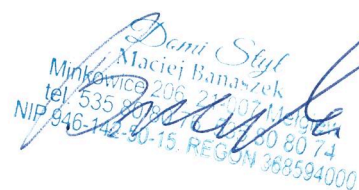 Dami Styl
Maciej Banaszek
Minkowice 206, 21-007
tel. 535 80 80 74
NIP 946-142-90-15. REGON 368594000